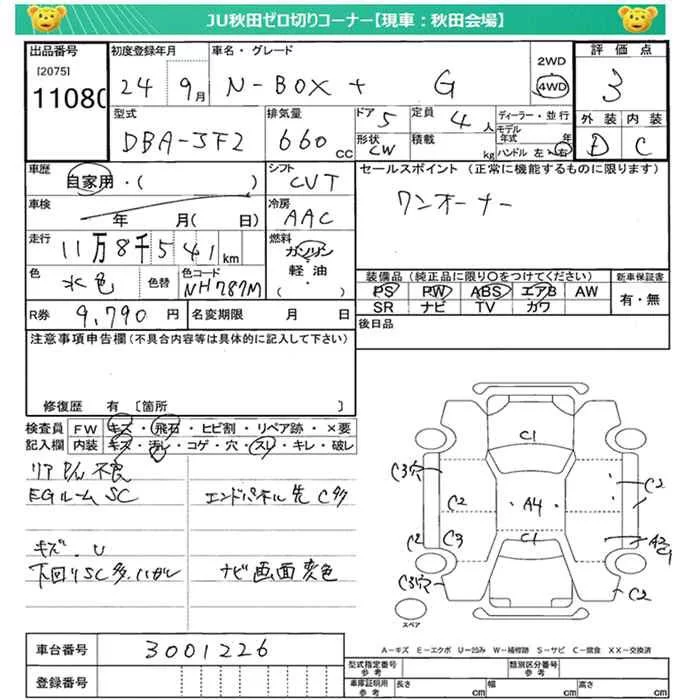 JU秋田ゼロ切りコーナー【現車：秋田会場】
出品番号 初度登録年月 車名・グレード 2WD 評価点
[2075] 24 9月 N-BOX + G 4WD 3
11080
型式 排気量 ドア 5 定員 4人 ディーラー・並行 外装 内装
DBA-JF2 660cc 形状 CW 積載 kg モデル年式 年 D C
ハンドル 左・右
車歴 シフト セールスポイント (正常に機能するものに限ります)
自家用・( ) CVT ワンオーナー
車検 年 月( 日) 冷房 AAC
走行 11万8千541km 燃料 ガソリン
軽油・( ・ )
色 水色 色替 色コード NH787M
装備品 (純正品に限り○をつけてください) 新車保証書
PS PW ABS エアB AW 有・無
SR ナビ TV カワ
R券 9,790円 名変期限 月 日 後日品
注意事項申告欄(不具合内容等は具体的に記入して下さい)
修復歴 有 [箇所 ]
検査員 FW キズ・飛石・ヒビ割・リペア跡・×要
記入欄 内装 キズ・汚レ・コゲ・穴・スレ・キレ・破レ
リア 不良
EGルームSC エンドパネル先C多
キズ.U
下回りSC多. ナビ画面変色
C1
C3穴 C2
C2 A4
C2 C3 C1 A2 C1
C3穴 C2
スペア
A-キズ E-エクボ U-凹み W-補修跡 S-サビ C-腐食 XX-交換済
車台番号 3001226
登録番号
型式指定番号 参考 類別区分番号 参考
車庫証明用 参考 長さ cm 幅 cm 高さ cm